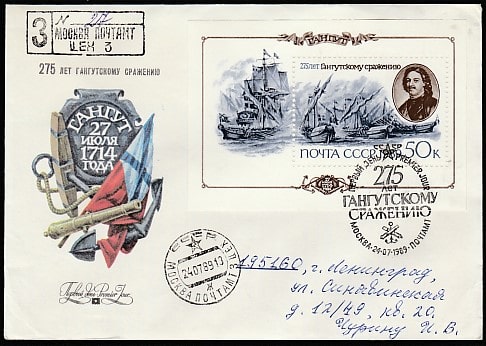 З № 217
МОСКВА ПОЧТАМТ
ЦЕХ 3
275 ЛЕТ ГАНГУТСКОМУ СРАЖЕНИЮ
ГАНГУТ
27
ИЮЛЯ
1714
ГОДА
Первый день Premier Jour
ГАНГУТ
275 лет Гангутскому сражению
ПОЧТА СССР 1989 50к
ПЕРВЫЙ ДЕНЬ PREMIER JOUR
275
ЛЕТ
ГАНГУТСКОМУ
СРАЖЕНИЮ
МОСКВА-24-07-1989-ПОЧТАМТ
СССР
24078910
Ж
МОСКВА ПОЧТАМТ ЦЕХ 3
195160, г. Ленинград,
ул. Синявинская
д. 12/49, кв. 20.
Чурину И. В.